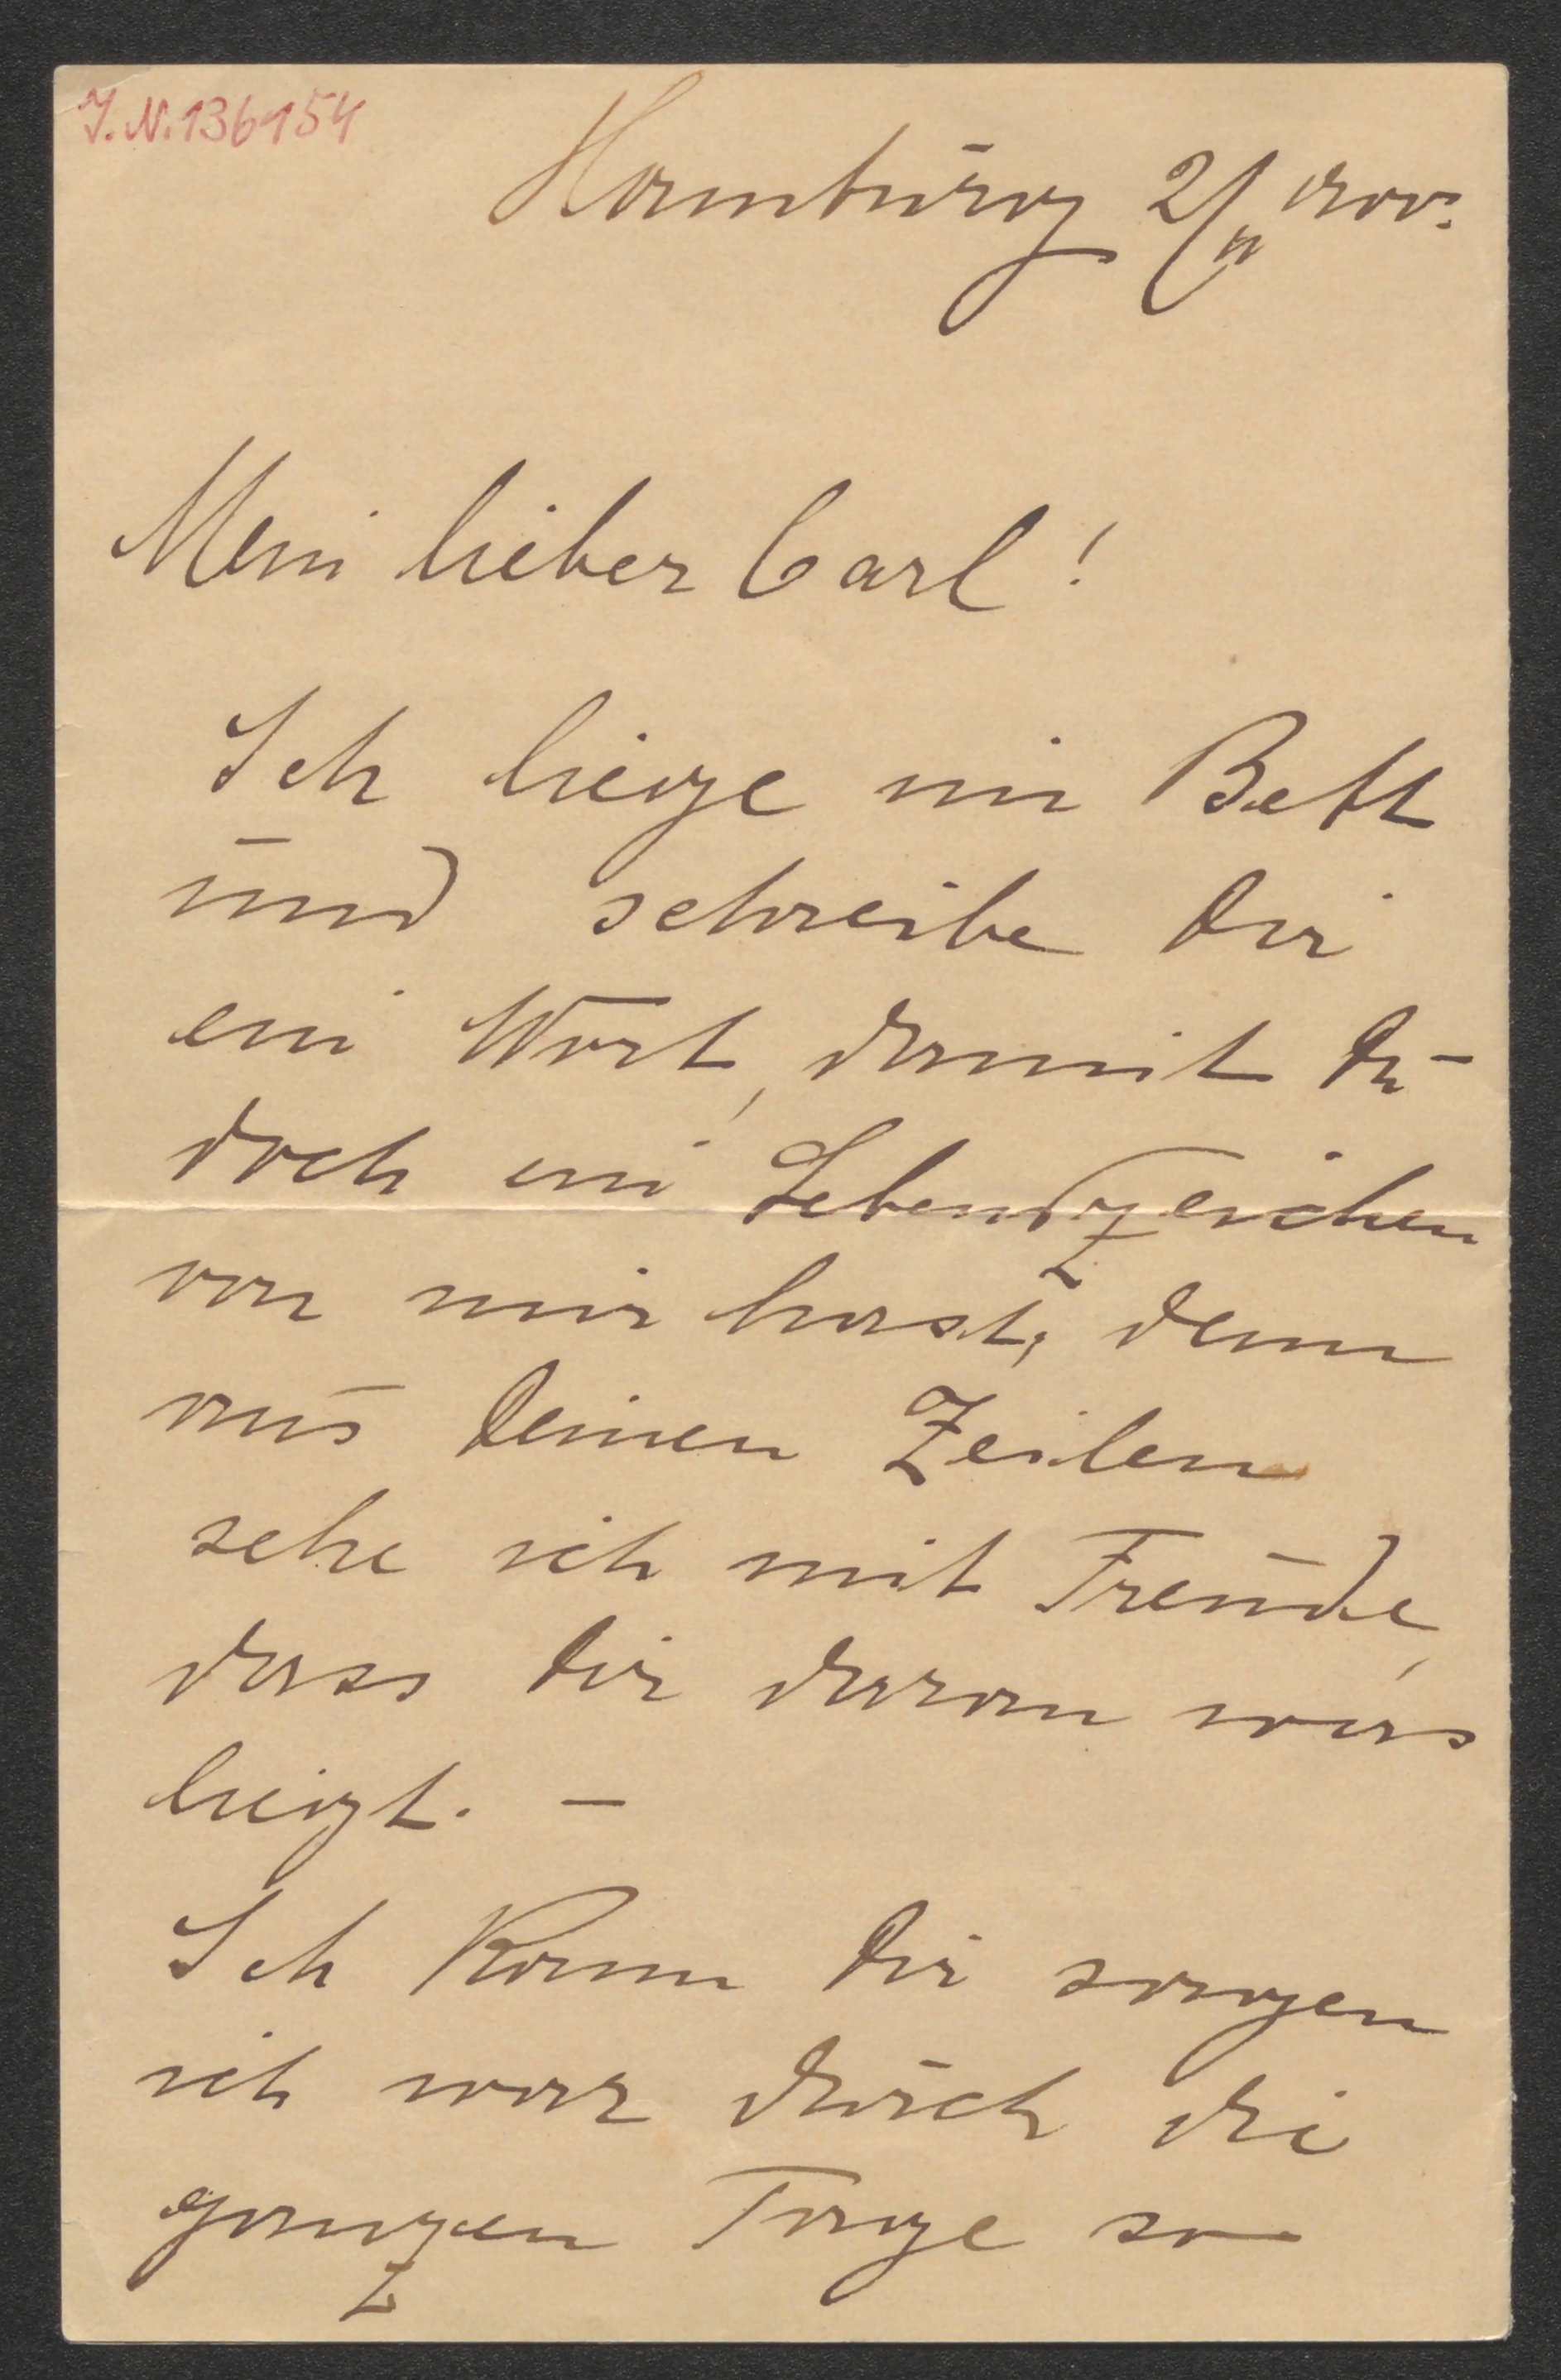 J.N. 136154
Hamburg 2/11 nov.
Mein lieber Carl!
Ich liege im Bett
und schreibe Dir
ein Wort, damit Du
doch ein Lebenszeichen
von mir hast, denn
aus Deinen Zeilen
sehe ich mit Freude,
dass Dir daran was
liegt. –
Ich kann Dir sagen
ich war durch die
ganzen Tage so